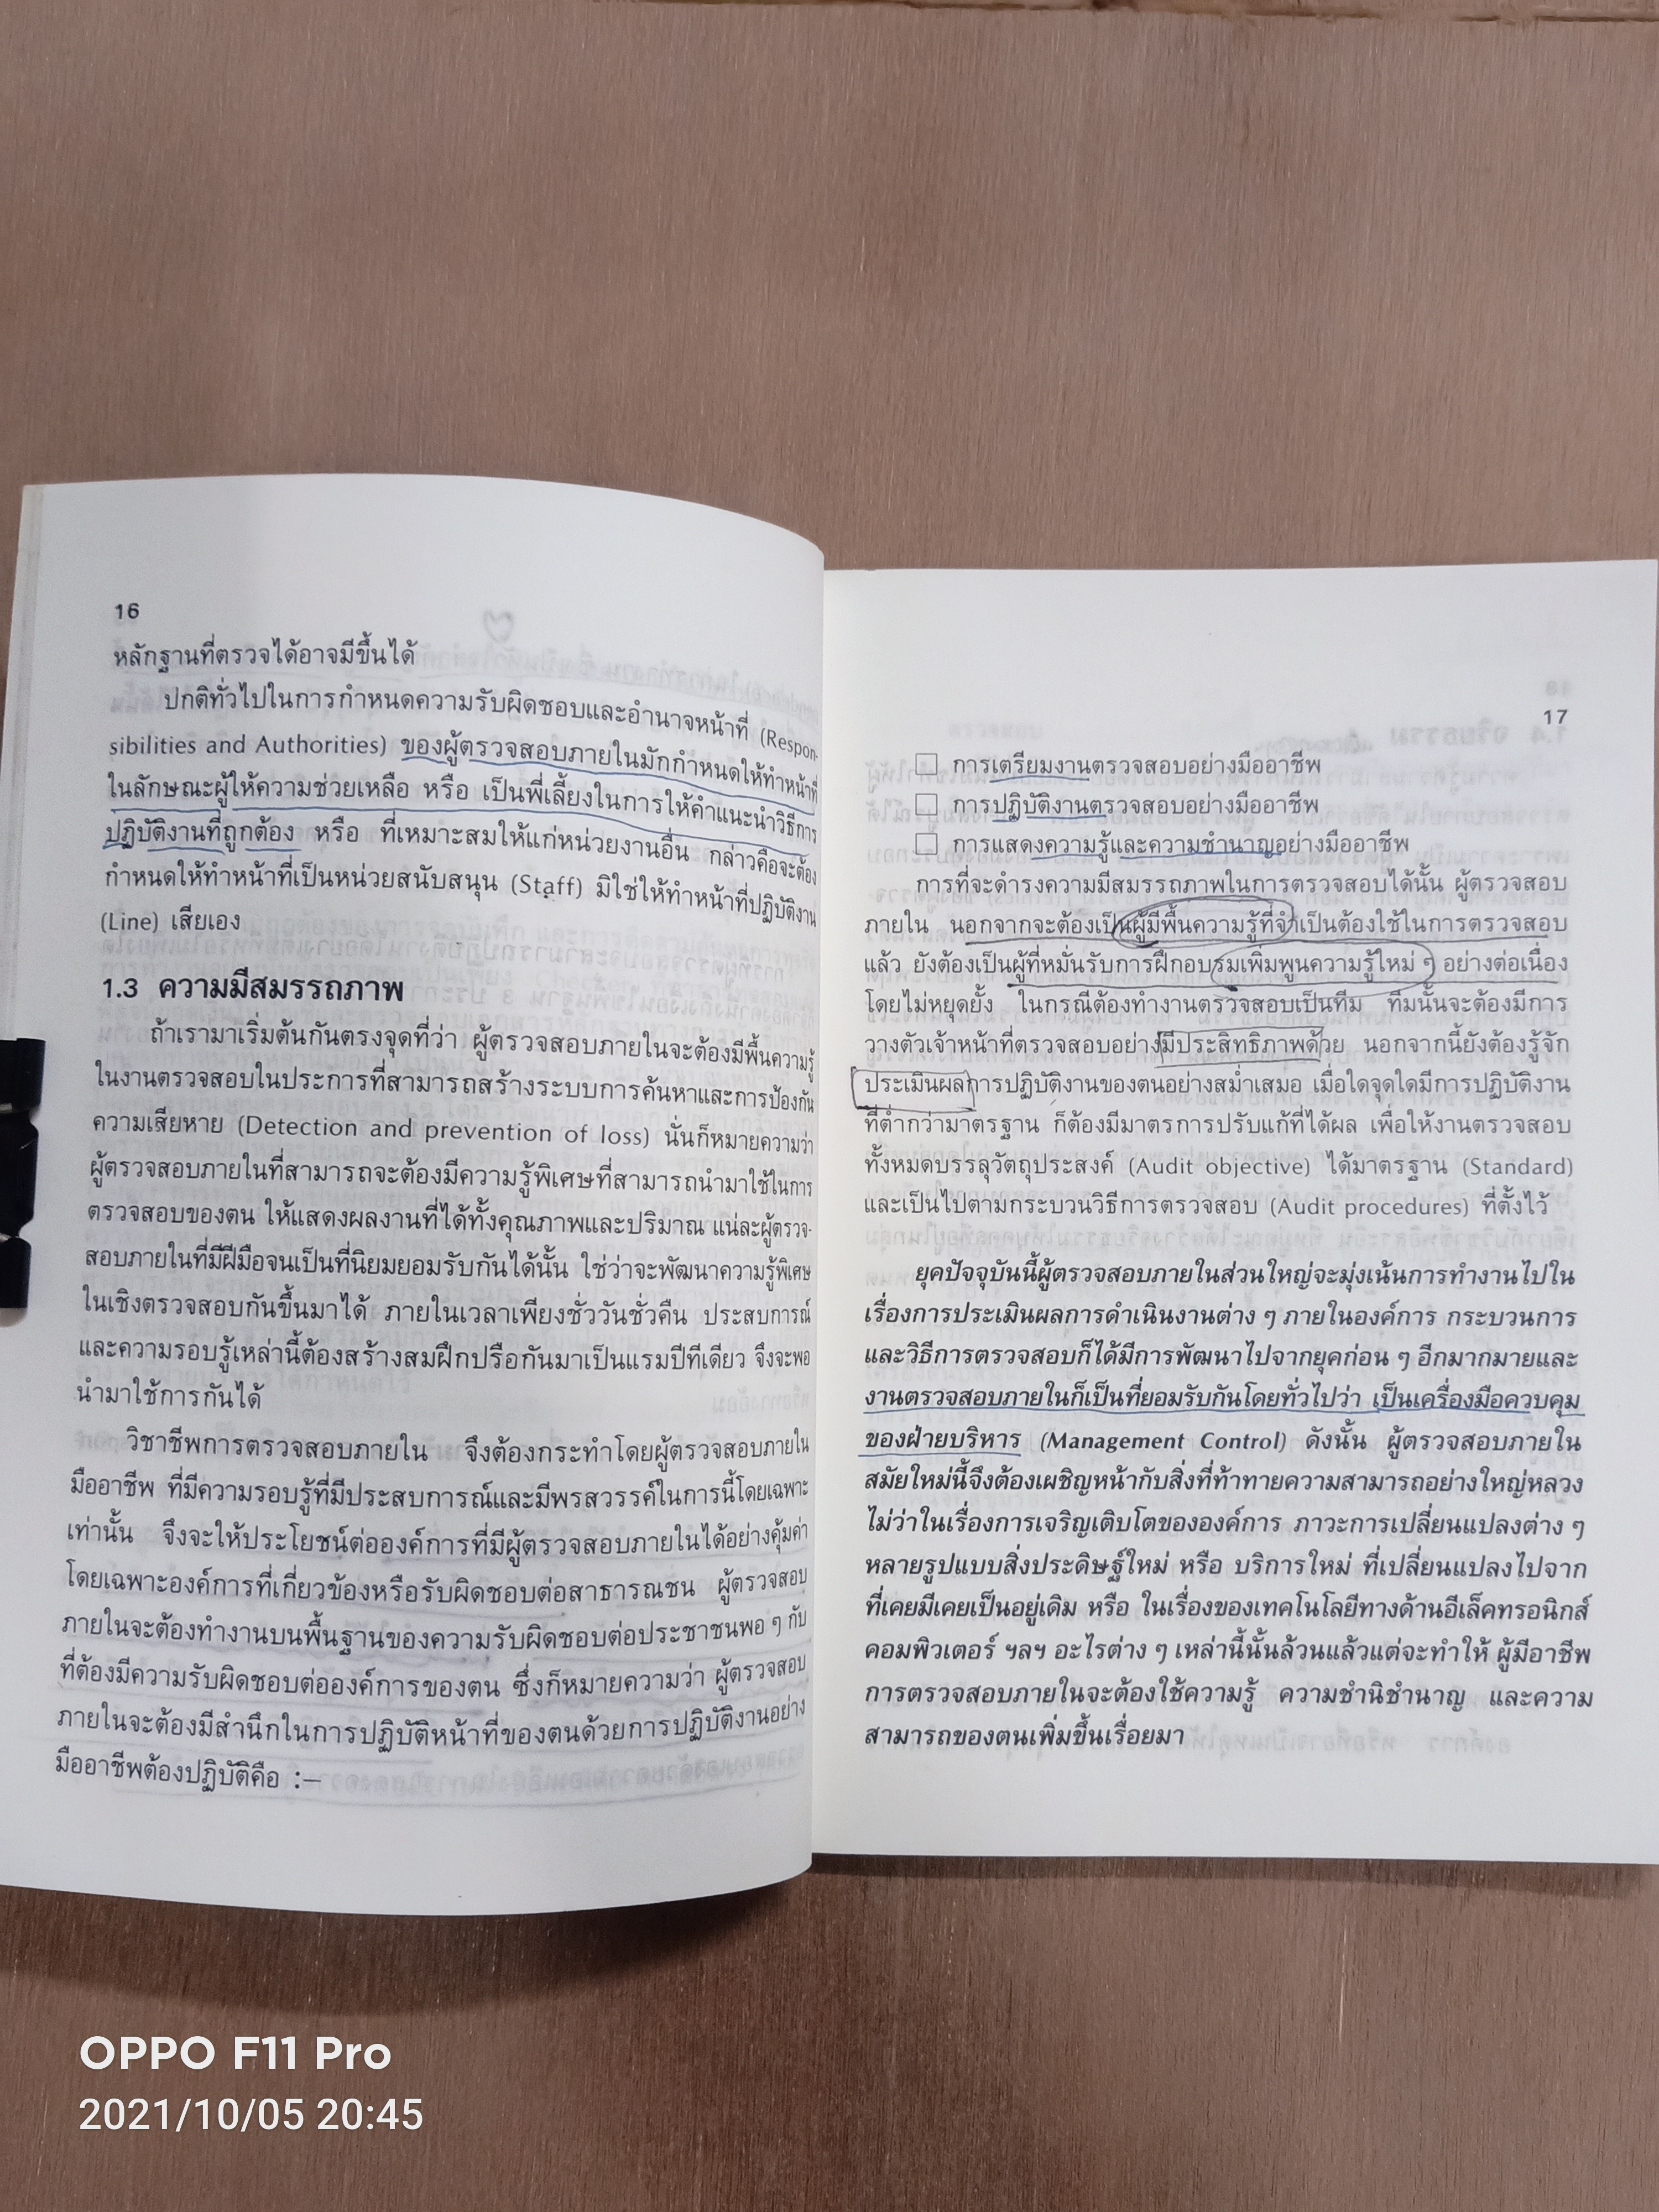 16
หลักฐานที่ตรวจได้อาจมีขึ้นได้
ปกติทั่วไปในการกำหนดความรับผิดชอบและอำนาจหน้าที่ (Respon-
sibilities and Authorities) ของผู้ตรวจสอบภายในมักกำหนดให้ทำหน้าที่
ในลักษณะผู้ให้ความช่วยเหลือ หรือ เป็นพี่เลี้ยงในการให้คำแนะนำวิธีการ
ปฏิบัติงานที่ถูกต้อง หรือ ที่เหมาะสมให้แก่หน่วยงานอื่น กล่าวคือจะต้อง
กำหนดให้ทำหน้าที่เป็นหน่วยสนับสนุน (Staff) มิใช่ให้ทำหน้าที่ปฏิบัติงาน
(Line) เสียเอง
1.3 ความมีสมรรถภาพ
ถ้าเรามาเริ่มต้นกันตรงจุดที่ว่า ผู้ตรวจสอบภายในจะต้องมีพื้นความรู้
ในงานตรวจสอบในประการที่สามารถสร้างระบบการค้นหาและการป้องกัน
ความเสียหาย (Detection and prevention of loss) นั่นก็หมายความว่า
ผู้ตรวจสอบภายในที่สามารถจะต้องมีความรู้พิเศษที่สามารถนำมาใช้ในการ
ตรวจสอบของตน ให้แสดงผลงานที่ได้ทั้งคุณภาพและปริมาณ แน่ละผู้ตรวจ-
สอบภายในที่มีฝีมือจนเป็นที่นิยมยอมรับกันได้นั้น ใช่ว่าจะพัฒนาความรู้พิเศษ
ในเชิงตรวจสอบกันขึ้นมาได้ ภายในเวลาเพียงชั่ววันชั่วคืน ประสบการณ์
และความรอบรู้เหล่านี้ต้องสร้างสมฝึกปรือกันมาเป็นแรมปีทีเดียว จึงจะพอ
นำมาใช้การกันได้
วิชาชีพการตรวจสอบภายใน จึงต้องกระทำโดยผู้ตรวจสอบภายใน
มืออาชีพ ที่มีความรอบรู้ที่มีประสบการณ์และมีพรสวรรค์ในการนี้โดยเฉพาะ
เท่านั้น จึงจะให้ประโยชน์ต่อองค์การที่มีผู้ตรวจสอบภายในได้อย่างคุ้มค่า
โดยเฉพาะองค์การที่เกี่ยวข้องหรือรับผิดชอบต่อสาธารณชน ผู้ตรวจสอบ
ภายในจะต้องทำงานบนพื้นฐานของความรับผิดชอบต่อประชาชนพอ ๆ กับ
ที่ต้องมีความรับผิดชอบต่อองค์การของตน ซึ่งก็หมายความว่า ผู้ตรวจสอบ
ภายในจะต้องมีสำนึกในการปฏิบัติหน้าที่ของตนด้วยการปฏิบัติงานอย่าง
มืออาชีพต้องปฏิบัติคือ :—
17
☐ การเตรียมงานตรวจสอบอย่างมืออาชีพ
☐ การปฏิบัติงานตรวจสอบอย่างมืออาชีพ
☐ การแสดงความรู้และความชำนาญอย่างมืออาชีพ
การที่จะดำรงความมีสมรรถภาพในการตรวจสอบได้นั้น ผู้ตรวจสอบ
ภายใน นอกจากจะต้องเป็นผู้มีพื้นความรู้ที่จำเป็นต้องใช้ในการตรวจสอบ
แล้ว ยังต้องเป็นผู้ที่หมั่นรับการฝึกอบรมเพิ่มพูนความรู้ใหม่ ๆ อย่างต่อเนื่อง
โดยไม่หยุดยั้ง ในกรณีต้องทำงานตรวจสอบเป็นทีม ทีมนั้นจะต้องมีการ
วางตัวเจ้าหน้าที่ตรวจสอบอย่างมีประสิทธิภาพด้วย นอกจากนี้ยังต้องรู้จัก
ประเมินผลการปฏิบัติงานของตนอย่างสม่ำเสมอ เมื่อใดจุดใดมีการปฏิบัติงาน
ที่ต่ำกว่ามาตรฐาน ก็ต้องมีมาตรการปรับแก้ที่ได้ผล เพื่อให้งานตรวจสอบ
ทั้งหมดบรรลุวัตถุประสงค์ (Audit objective) ได้มาตรฐาน (Standard)
และเป็นไปตามกระบวนวิธีการตรวจสอบ (Audit procedures) ที่ตั้งไว้
ยุคปัจจุบันนี้ผู้ตรวจสอบภายในส่วนใหญ่จะมุ่งเน้นการทำงานไปใน
เรื่องการประเมินผลการดำเนินงานต่าง ๆ ภายในองค์การ กระบวนการ
และวิธีการตรวจสอบก็ได้มีการพัฒนาไปจากยุคก่อน ๆ อีกมากมายและ
งานตรวจสอบภายในก็เป็นที่ยอมรับกันโดยทั่วไปว่า เป็นเครื่องมือควบคุม
ของฝ่ายบริหาร (Management Control) ดังนั้น ผู้ตรวจสอบภายใน
สมัยใหม่นี้จึงต้องเผชิญหน้ากับสิ่งที่ท้าทายความสามารถอย่างใหญ่หลวง
ไม่ว่าในเรื่องการเจริญเติบโตขององค์การ ภาวะการเปลี่ยนแปลงต่าง ๆ
หลายรูปแบบสิ่งประดิษฐ์ใหม่ หรือ บริการใหม่ ที่เปลี่ยนแปลงไปจาก
ที่เคยมีเคยเป็นอยู่เดิม หรือ ในเรื่องของเทคโนโลยีทางด้านอีเล็คทรอนิกส์
คอมพิวเตอร์ ฯลฯ อะไรต่าง ๆ เหล่านี้นั้นล้วนแล้วแต่จะทำให้ ผู้มีอาชีพ
การตรวจสอบภายในจะต้องใช้ความรู้ ความชำนิชำนาญ และความ
สามารถของตนเพิ่มขึ้นเรื่อยมา
OPPO F11 Pro
2021/10/05 20:45